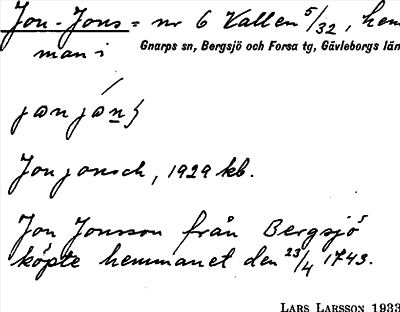 Jon-Jons = nr 6 Vallen 5/32, hem
man i Gnarps sn, Bergsjö och Forsa tg, Gävleborgs län
Jon jonsch, 1929 kb.
Jon Jonsson från Bergsjö
köpte hemmanet den 23/4 1743.
LARS LARSSON 1933